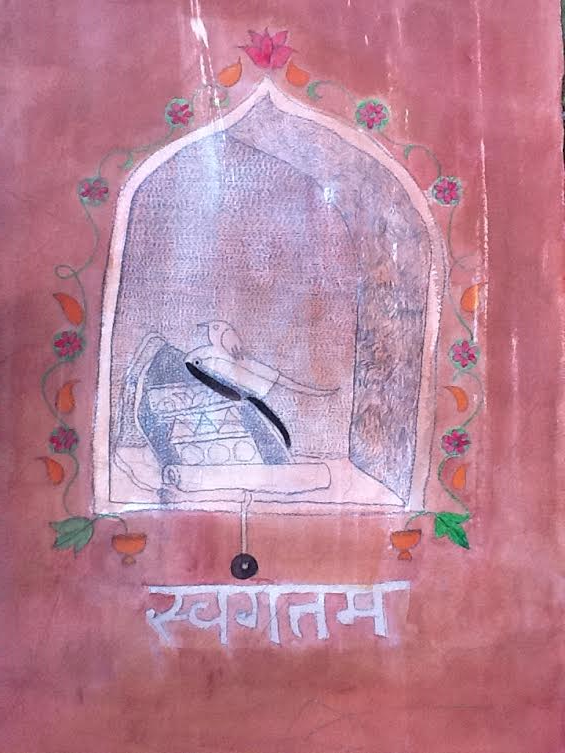 स्वगतम